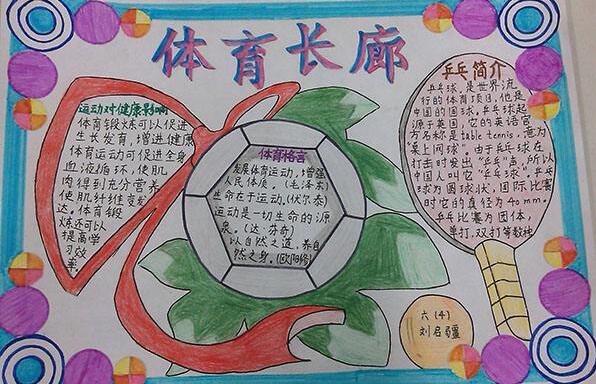 体育长廊
运动对健康影响
体育锻炼可以促进
生长发育，增进健康
体育运动可促进全身
血液循环，使肌
肉得到充分营养
使肌纤维变发
达。体育锻
炼还可以
提高学
习效
率。
体育格言
发展体育运动，增强
人民体质。(毛泽东)
生命在于运动。(伏尔泰)
运动是一切生命的源
泉。(达·芬奇)
以自然之道，养自
然之身。(欧阳修)
乒乓简介
乒乓球，是世界流
行的体育项目，他是
中国的国球，乒乓球起
源于英国，它的英语官
方名称是table tennis，意为
“桌上网球”。由于乒乓球在
打击时发出“乒乓”声，所以
中国人叫它“乒乓球”，乒乓
球为圆球状，国际比赛
时它的直径为40mm。
乒乓比赛为团体、
单打、双打等数种
六(4)
刘启疆